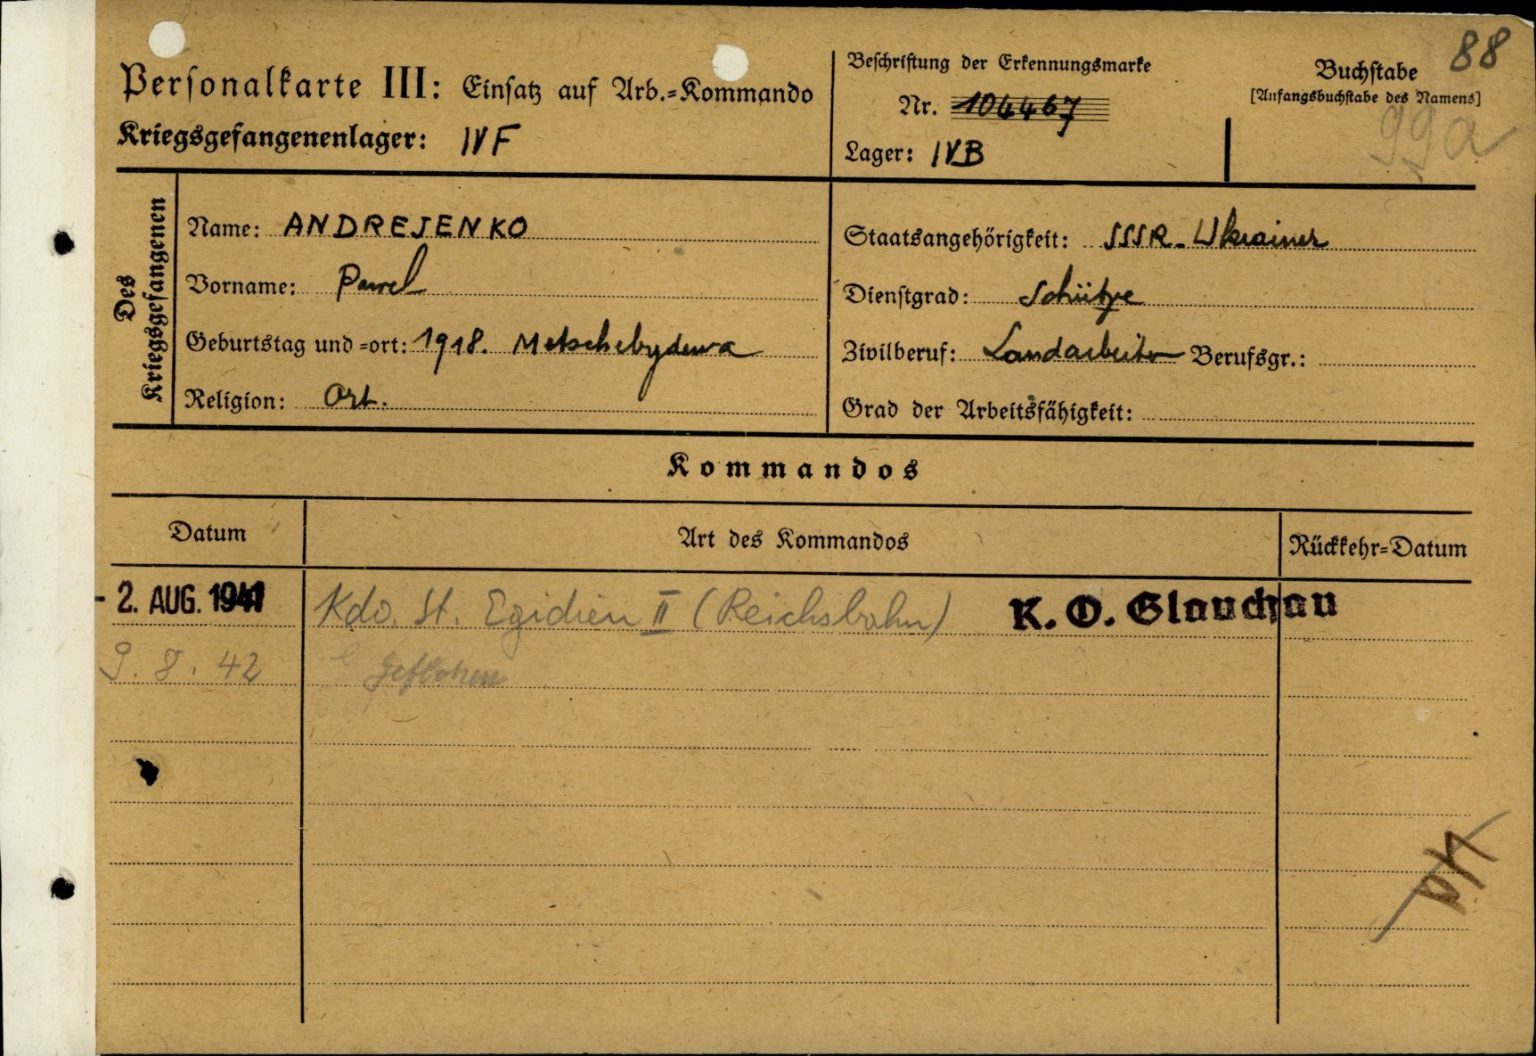 88
Personalkarte III: Einsatz auf Arb.=Kommando
Kriegsgefangenenlager: IVF
Beschriftung der Erkennungsmarke
Nr. 104467
Lager: IVB
Buchstabe
[Anfangsbuchstabe des Namens]
99a
Des Kriegsgefangenen
Name: ANDREJENKO
Vorname: Pawel
Geburtstag und =ort: 1918. Metschebydewa
Religion: Ort.
Staatsangehörigkeit: SSSR - Ukrainer
Dienstgrad: Schütze
Zivilberuf: Landarbeiter Berufsgr.:
Grad der Arbeitsfähigkeit:
Kommandos
Datum Art des Kommandos Rückkehr=Datum
- 2. AUG. 1941 Kdo. St. Egidien II (Reichsbahn) K. O. Glauchau
9. 8. 42 Geflohen